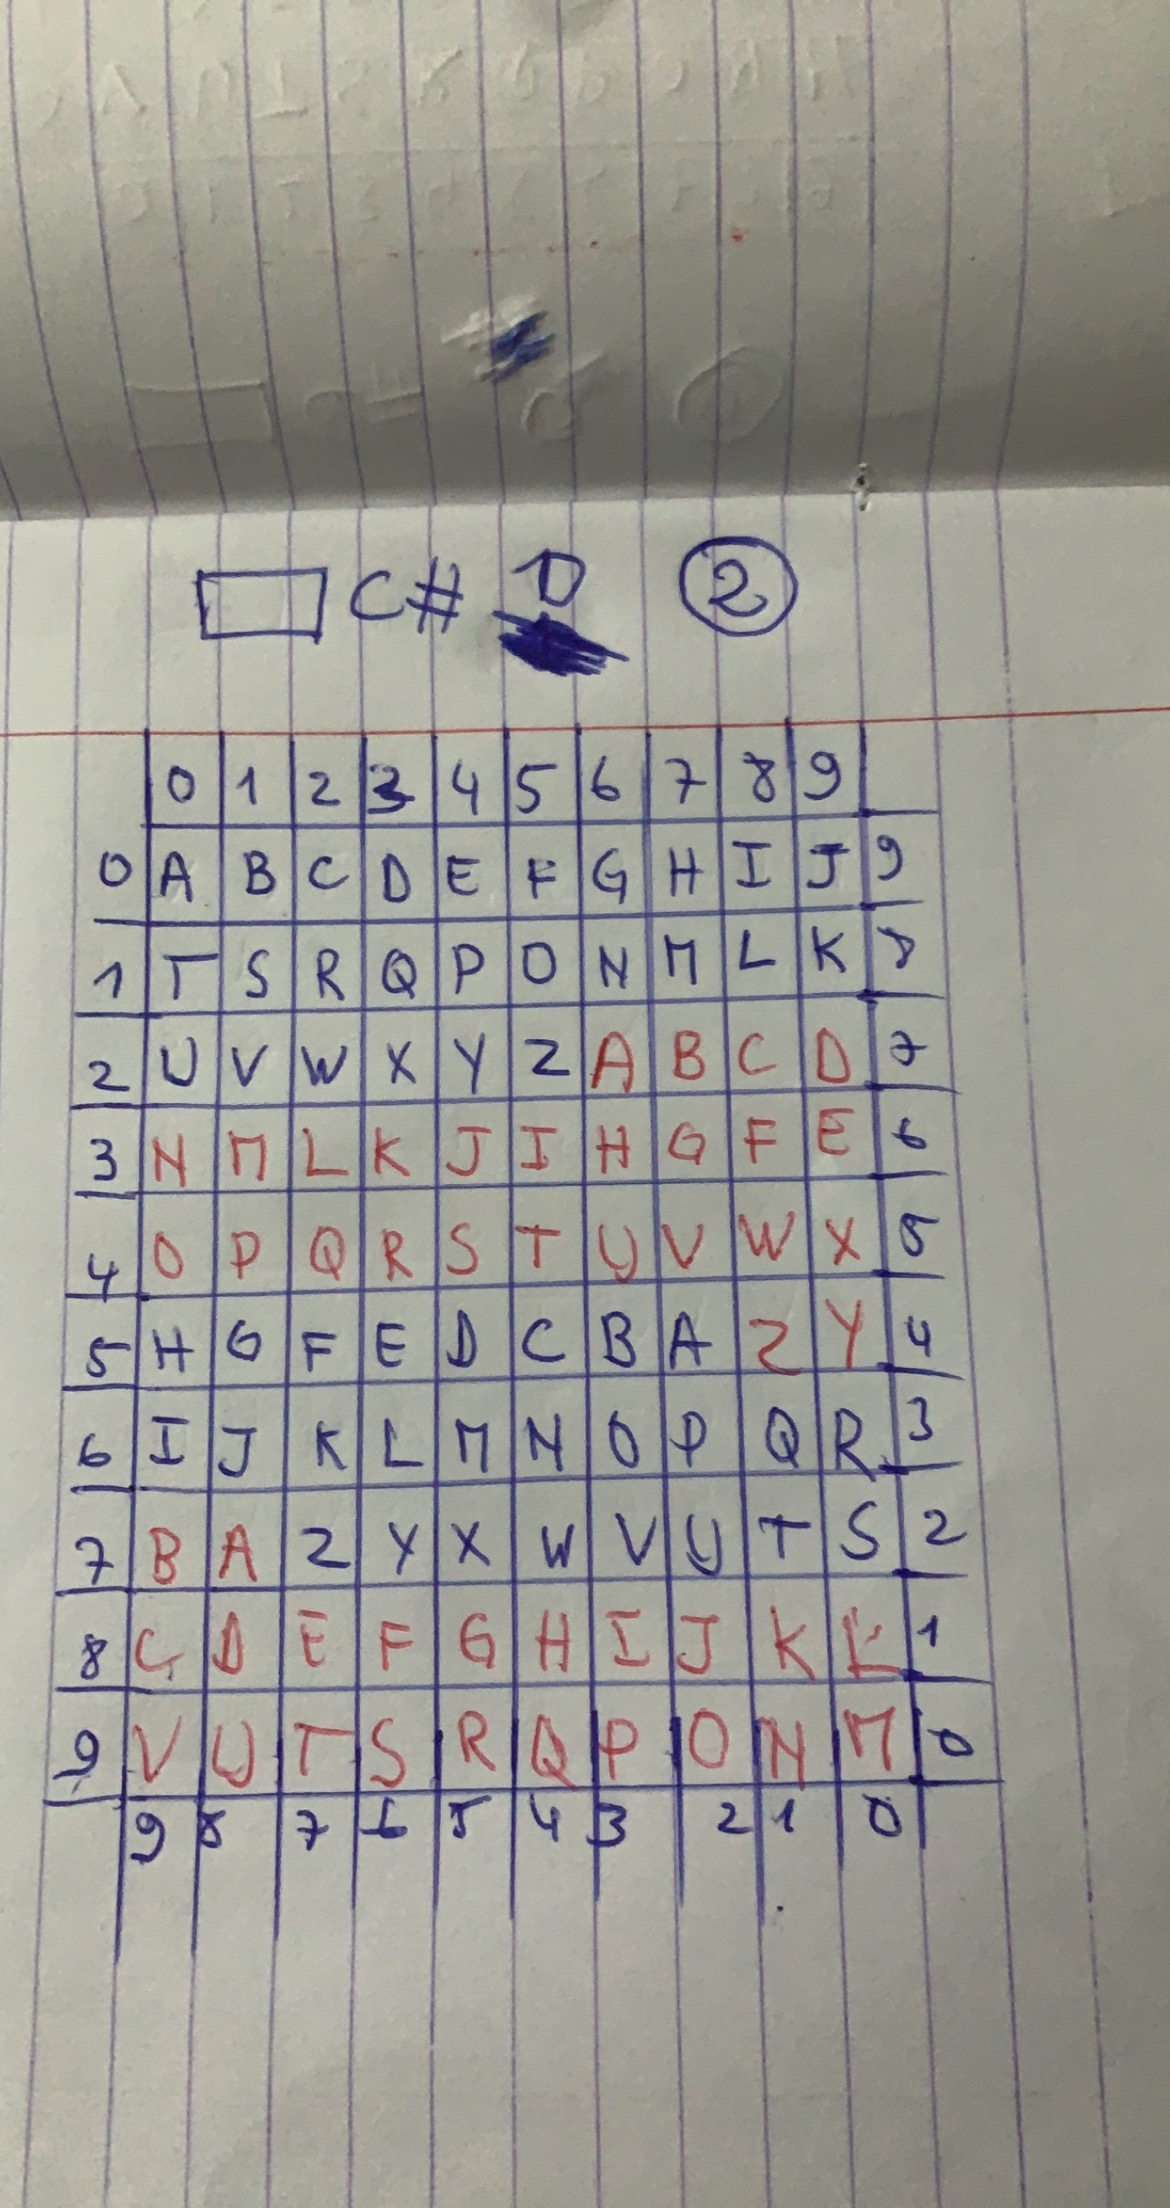 C# D 2
0 1 2 3 4 5 6 7 8 9
0 A B C D E F G H I J 9
1 T S R Q P O N M L K 8
2 U V W X Y Z A B C D 7
3 N M L K J I H G F E 6
4 O P Q R S T U V W X 5
5 H G F E D C B A Z Y 4
6 I J K L M N O P Q R 3
7 B A Z Y X W V U T S 2
8 C D E F G H I J K L 1
9 V U T S R Q P O N M 0
9 8 7 6 5 4 3 2 1 0